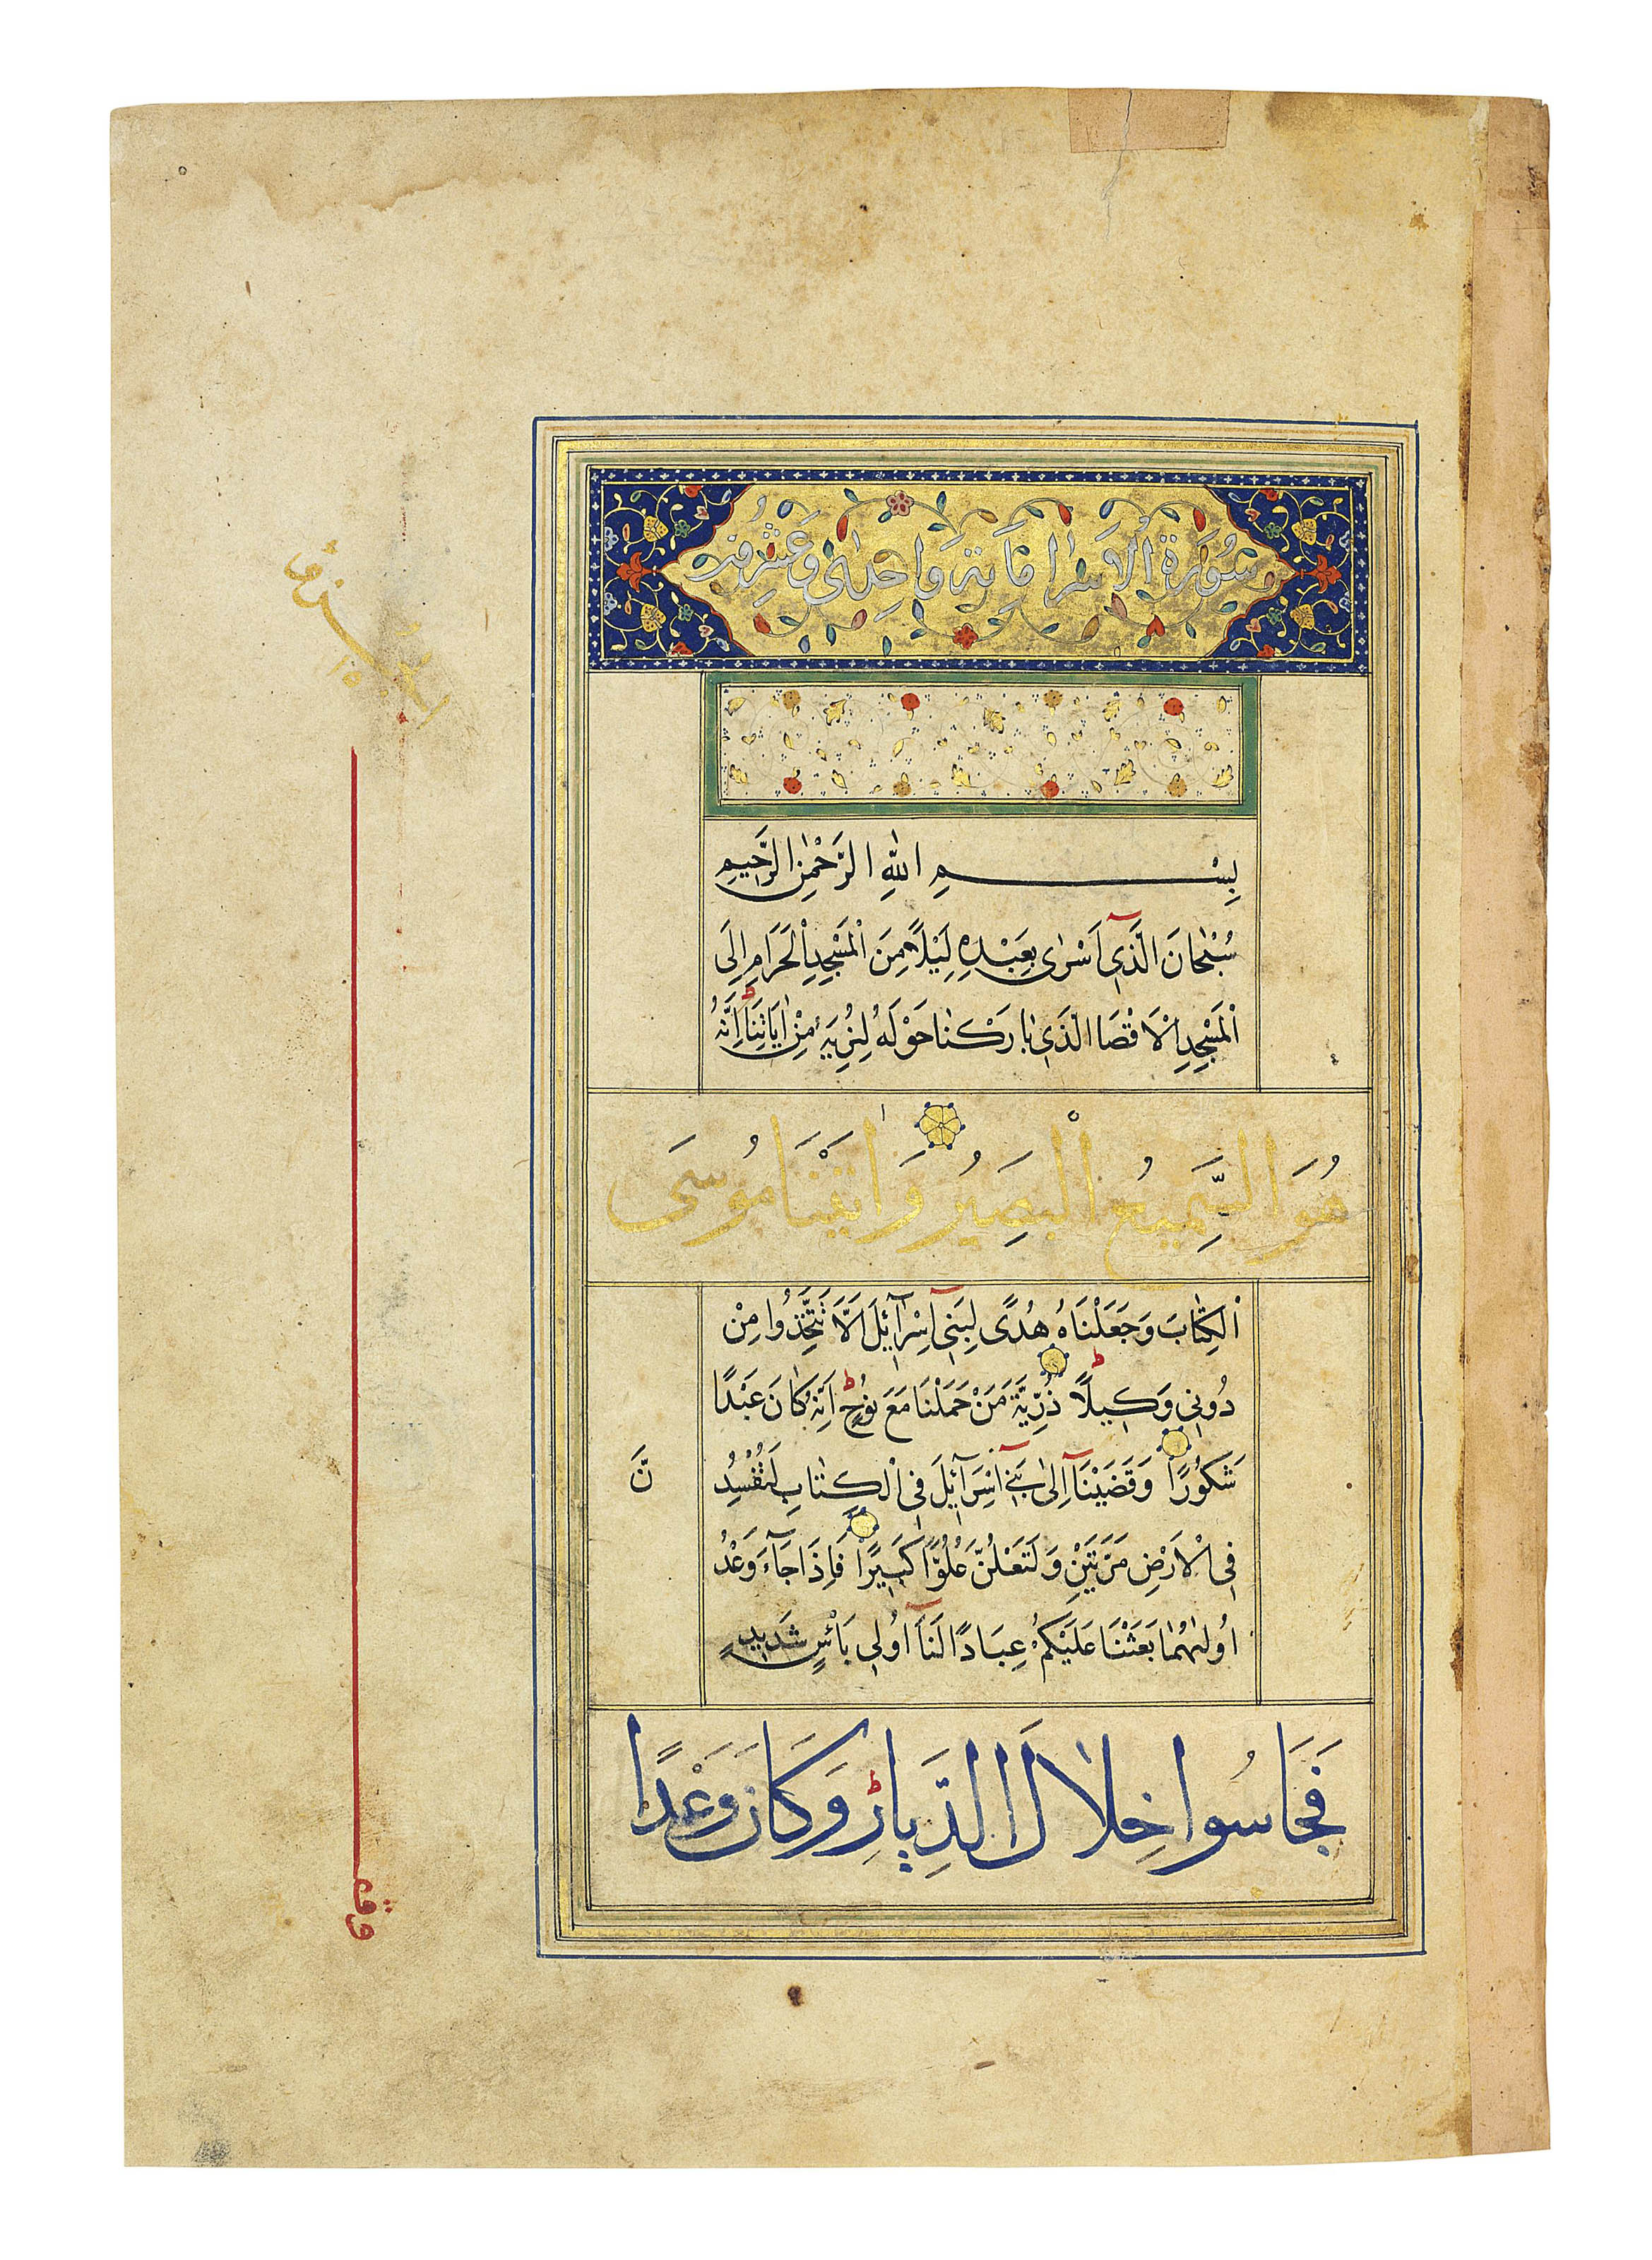 سُورَةُ الاَسْرٰا مِايَة وَاحِدٰى وَعَشَرَ
بِسْمِ اللّٰهِ الرَّحْمٰنِ الرَّحِيمِ
سُبْحٰانَ الَّذِىٓ اَسْرٰى بِعَبْدِهِ لَيْلًا مِنَ الْمَسْجِدِ الْحَرَامِ اِلَى
الْمَسْجِدِ الْاَقْصَا الَّذِى بٰارَكْنٰا حَوْلَهُ لِنُرِيَهُ مِنْ اٰيَاتِنَا اِنَّهُ
هُوَ السَّمِيعُ الْبَصِيرُ وَاٰتَيْنَا مُوسَى
الْكِتٰابَ وَجَعَلْنَاهُ هُدًى لِبَنِىٓ اِسْرٰآئِلَ اَلَّا تَتَّخِذُوا مِنْ
دُونِى وَكِيلًا ذُرِّيَّةَ مَنْ حَمَلْنَا مَعَ نُوحٍ اِنَّهُ كٰانَ عَبْدًا
شَكُورًا وَقَضَيْنَآ اِلٰى بَنِىٓ اِسْرَآئِلَ فِى الْكِتٰابِ لَتُفْسِدُ
نَّ
فِى الْاَرْضِ مَرَّتَيْنِ وَلَتَعْلُنَّ عُلُوًّا كَبِيرًا فَاِذَا جَآءَ وَعْدُ
اُولٰيهُمٰا بَعَثْنَا عَلَيْكُمْ عِبَادًا لَنَآ اُولِى بَأْسٍ شَدِيدٍ
فَجَاسُوا خِلٰالَ الدِّيٰارِ وَكَانَ وَعْدًا
وقف